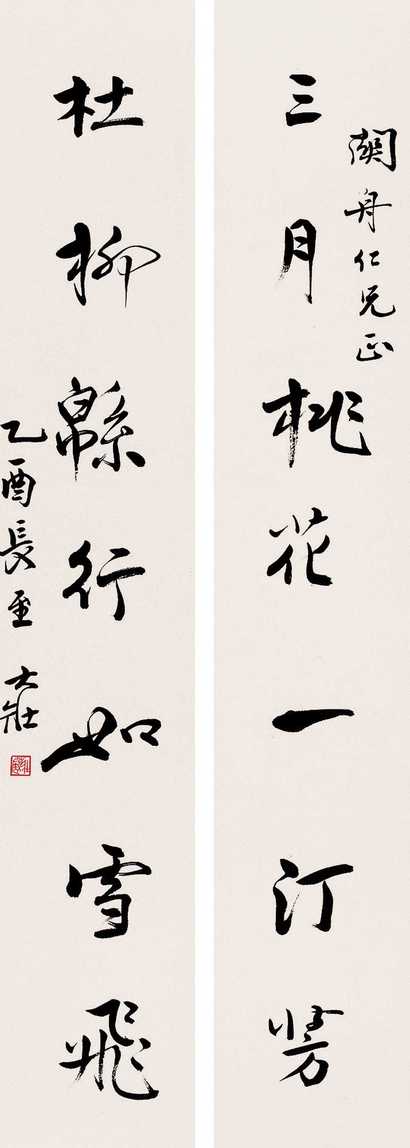 瀾舟仁兄正
三月桃花一汀芳
杜柳緜行如雪飛
乙酉長至 大壯